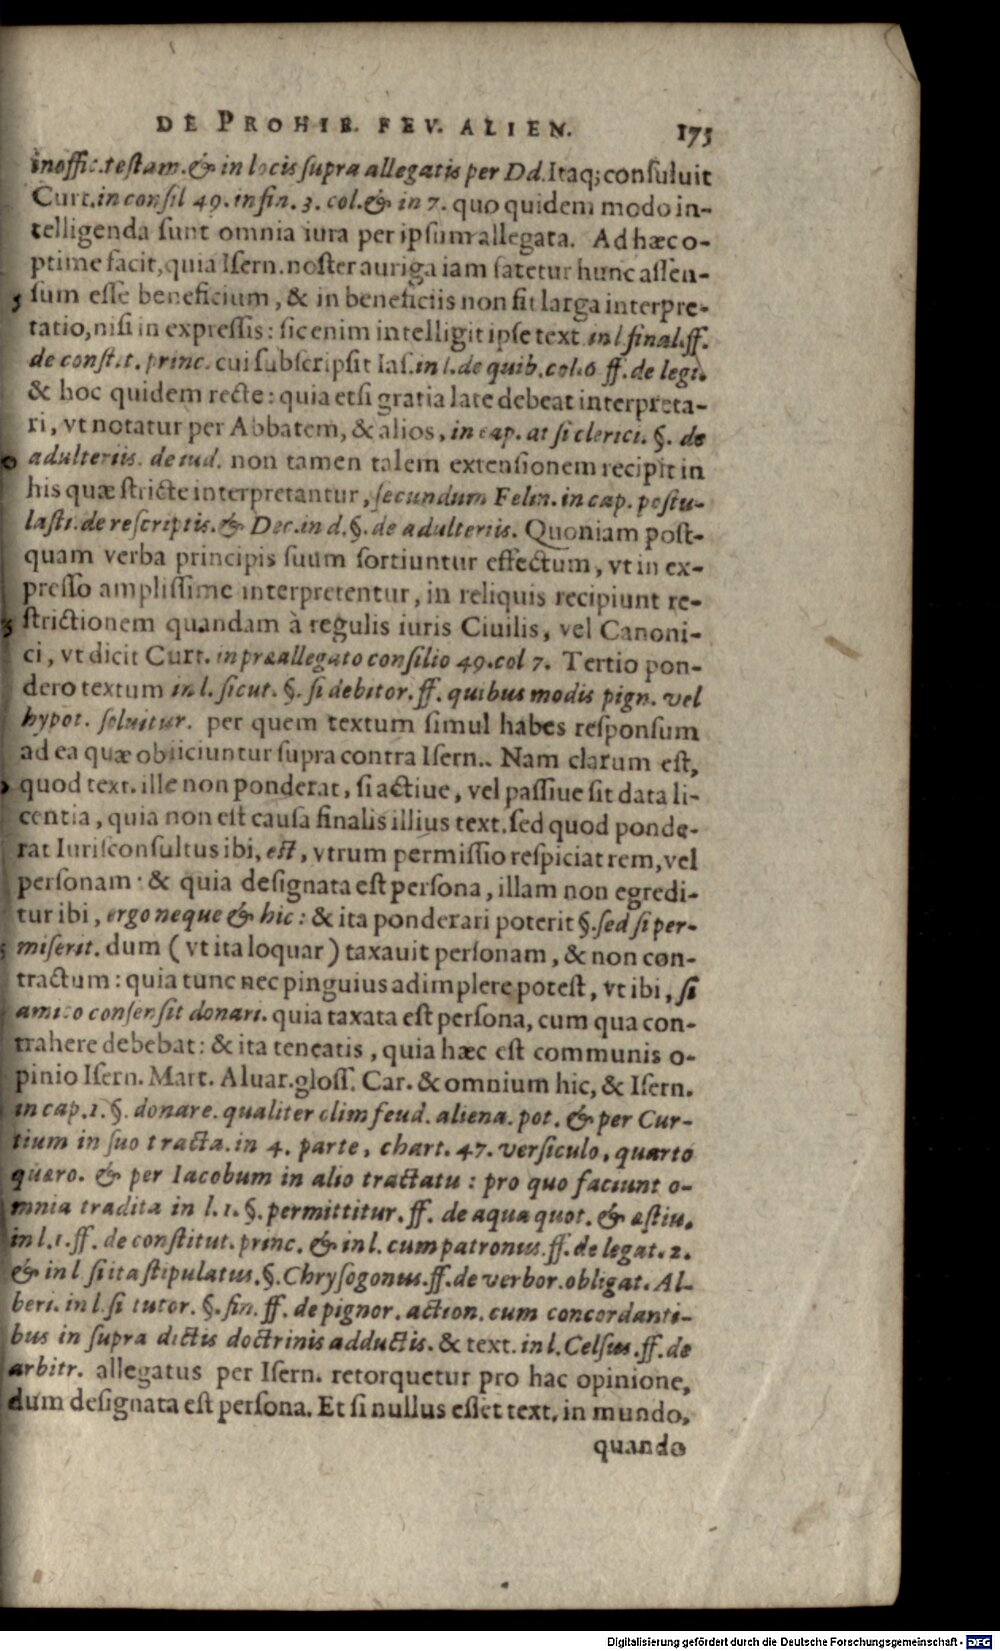 DE PROHIB. FEV. ALIEN. 175
inoffic.testam.& in locis supra allegatis per Dd.Itaq; consuluit
Curt.in consil 49. in fin. 3. col.& in 7. quo quidem modo in-
telligenda sunt omnia iura per ipsum allegata. Ad hæc o-
ptime facit, quia Isern. noster auriga iam fatetur hunc assen-
sum esse beneficium, & in beneficiis non fit larga interpre-
tatio, nisi in expressis: sic enim intelligit ipse text in l final.ff.
de constit. princ. cui subscripsit Ias.in l.de quib.col.6 ff.de legi.
& hoc quidem recte: quia etsi gratia late debeat interpreta-
ri, vt notatur per Abbatem, & alios, in cap. at si clerici. §. de
adulteriis. de iud. non tamen talem extensionem recipit in
his quæ stricte interpretantur, secundum Felin. in cap. postu-
lasti. de rescriptis. & Dec.in d.§. de adulteriis. Quoniam post-
quam verba principis suum sortiuntur effectum, vt in ex-
presso amplissime interpretentur, in reliquis recipiunt re-
strictionem quandam à regulis iuris Ciuilis, vel Canoni-
ci, vt dicit Curt. in præallegato consilio 49.col 7. Tertio pon-
dero textum in l. sicut. §. si debitor. ff. quibus modis pign. vel
hypot. soluitur. per quem textum simul habes responsum
ad ea quæ obiiciuntur supra contra Isern.. Nam clarum est,
quod text. ille non ponderat, si actiue, vel passiue sit data li-
centia, quia non est causa finalis illius text. sed quod ponde-
rat Iurisconsultus ibi, est, vtrum permissio respiciat rem, vel
personam: & quia designata est persona, illam non egredi-
tur ibi, ergo neque & hic: & ita ponderari poterit §. sed si per-
miserit. dum (vt ita loquar) taxauit personam, & non con-
tractum: quia tunc nec pinguius adimplere potest, vt ibi, si
amico consensit donari. quia taxata est persona, cum qua con-
trahere debebat: & ita teneatis, quia hæc est communis o-
pinio Isern. Mart. Aluar.gloss. Car. & omnium hic, & Isern.
in cap.1. §. donare. qualiter olim feud. aliena. pot. & per Cur-
tium in suo tracta. in 4. parte, chart. 47. versiculo, quarto
quæro. & per Iacobum in alio tractatu : pro quo faciunt o-
mnia tradita in l. 1. §. permittitur. ff. de aqua quot. & æstiu.
in l. 1. ff. de constitut. princ. & in l. cum patronus.ff. de legat. 2.
& in l si ita stipulatus. §. Chrysogonus.ff.de verbor.obligat. Al-
beri. in l. si tutor. §. fin. ff. de pignor. action. cum concordanti-
bus in supra dictis doctrinis adductis. & text. in l. Celsus.ff.de
arbitr. allegatus per Isern. retorquetur pro hac opinione,
dum designata est persona. Et si nullus esset text. in mundo,
quando
Digitalisierung gefördert durch die Deutsche Forschungsgemeinschaft - DFG